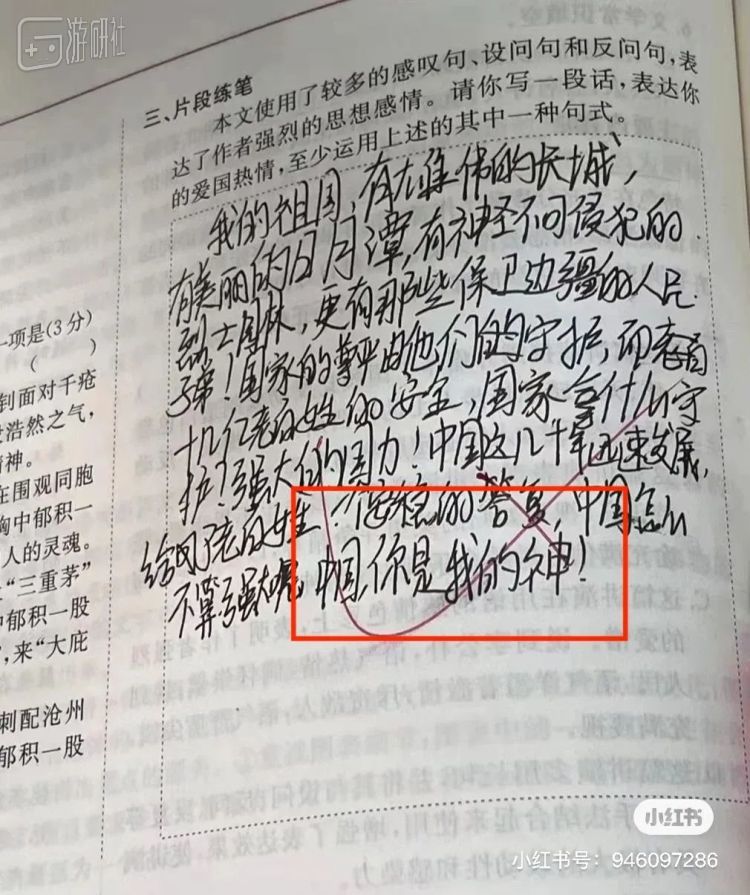 游研社
三、片段练笔
本文使用了较多的感叹句、设问句和反问句，表
达了作者强烈的思想感情。请你写一段话，表达你
的爱国热情，至少运用上述的其中一种句式。
我的祖国，有大雄伟的长城，
有美丽的日月潭，有神圣不可侵犯的
烈士园林，更有那些保卫边疆的人民
子弟！国家的尊严由他们的守护，而
十几亿老百姓的安全，国家拿什么守
护？强大的国力！中国这几十年迅速发展，
给了老百姓 的答复，中国怎么
不算强大呢 中国你是我的神！
一项是(3分)
(  )
到面对千疮
浩然之气，
精神。
在围观同胞
胸中郁积一
人的灵魂。
“三重茅”
中郁积一股
，来“大庇
刺配沧州
郁积一股
小红书
小红书号：946097286